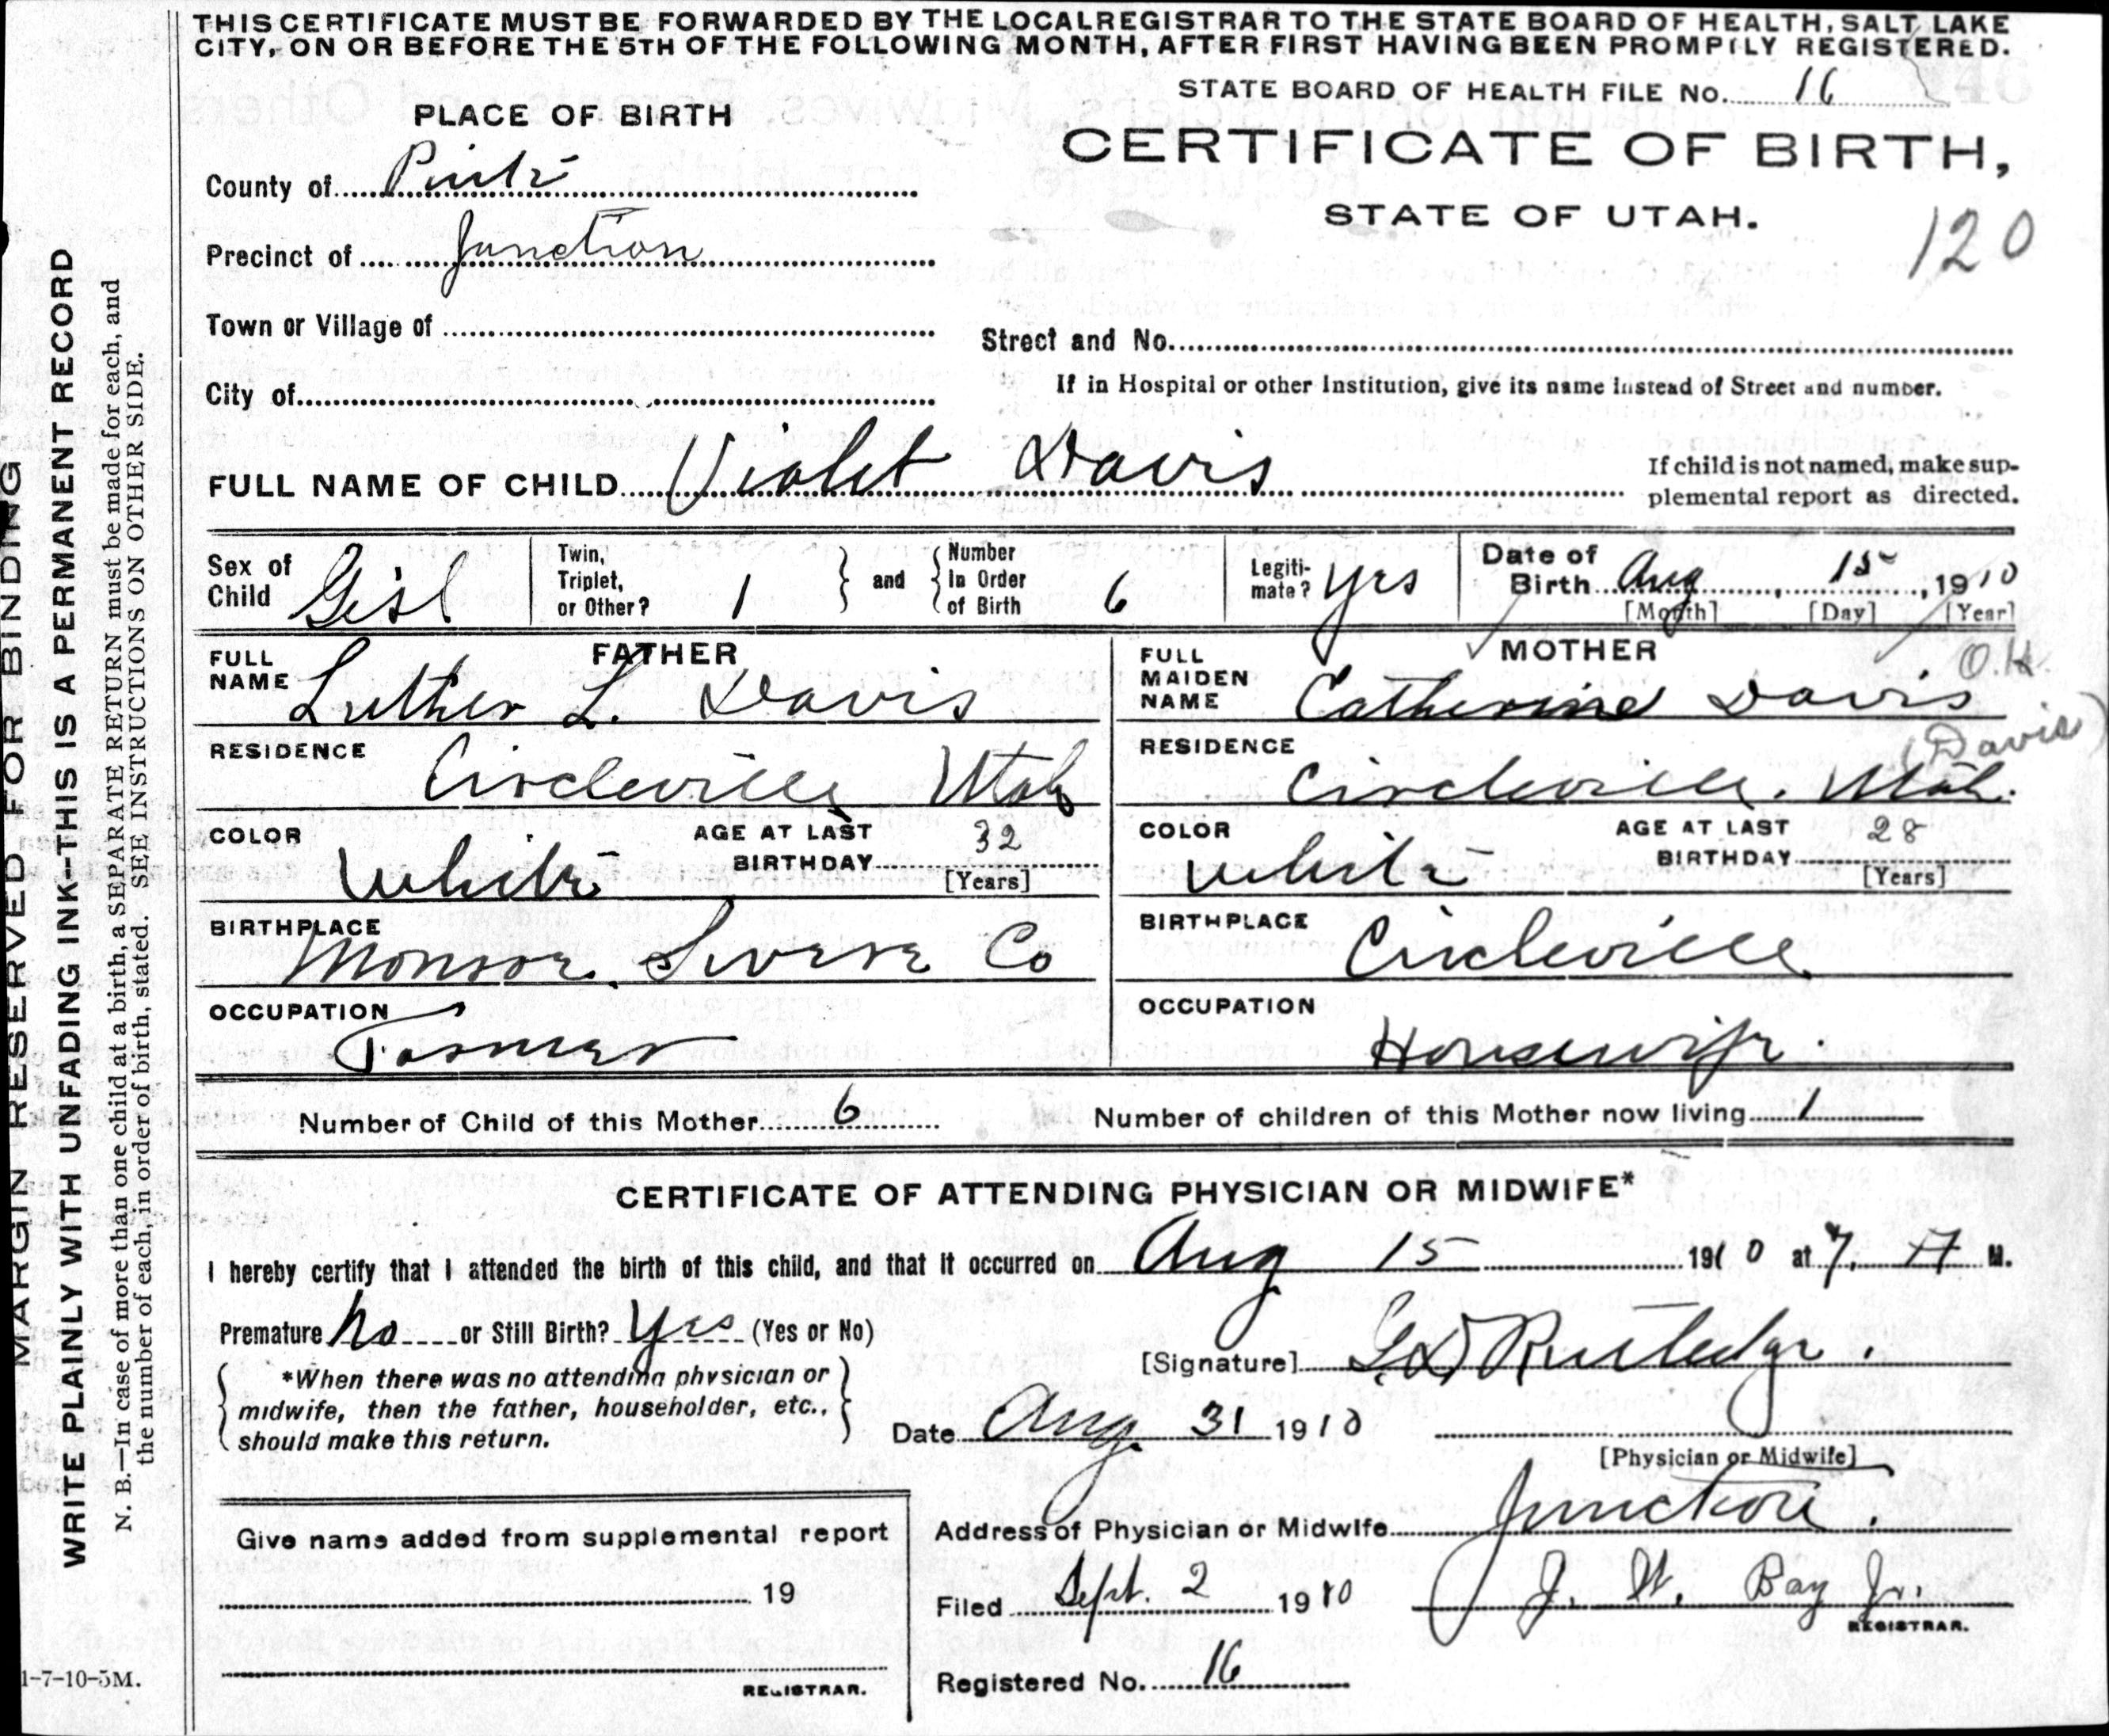 THIS CERTIFICATE MUST BE FORWARDED BY THE LOCAL REGISTRAR TO THE STATE BOARD OF HEALTH, SALT LAKE
CITY, ON OR BEFORE THE 5TH OF THE FOLLOWING MONTH, AFTER FIRST HAVING BEEN PROMPTLY REGISTERED.
STATE BOARD OF HEALTH FILE No. 16
PLACE OF BIRTH
CERTIFICATE OF BIRTH,
STATE OF UTAH.
120
County of Piute
Precinct of Junction
Town or Village of
Street and No.
City of
If in Hospital or other Institution, give its name instead of Street and number.
FULL NAME OF CHILD Violet Davis
If child is not named, make sup-
plemental report as directed.
Sex of Child Girl
Twin, Triplet, or Other? 1
and Number in Order of Birth 6
Legiti-mate? Yes
Date of Birth Aug 15, 1910
[Month] [Day] [Year]
FATHER
FULL NAME Luther L. Davis
RESIDENCE Circleville Utah
COLOR White AGE AT LAST BIRTHDAY 32 [Years]
BIRTHPLACE Monroe. Severe Co
OCCUPATION Farmer
MOTHER
O.K.
FULL MAIDEN NAME Catherine Davis
(Davis)
RESIDENCE Circleville. Utah.
COLOR White AGE AT LAST BIRTHDAY 28 [Years]
BIRTHPLACE Circleville
OCCUPATION Housewife.
Number of Child of this Mother 6 Number of children of this Mother now living 1
CERTIFICATE OF ATTENDING PHYSICIAN OR MIDWIFE*
I hereby certify that I attended the birth of this child, and that it occurred on Aug 15 1910 at 7. M.
Premature No or Still Birth? Yes (Yes or No)
[Signature] Rutledge.
*When there was no attending physician or
midwife, then the father, householder, etc.,
should make this return.
Date Aug. 31 1910
[Physician or Midwife]
Give name added from supplemental report
19
REGISTRAR.
Address of Physician or Midwife Junction.
Filed Sept. 2 1910 J. W. Bay Jr.
REGISTRAR.
Registered No. 16
MARGIN RESERVED FOR BINDING
WRITE PLAINLY WITH UNFADING INK--THIS IS A PERMANENT RECORD
N. B.—In case of more than one child at a birth, a SEPARATE RETURN must be made for each, and
the number of each, in order of birth, stated. SEE INSTRUCTIONS ON OTHER SIDE.
1-7-10-5M.